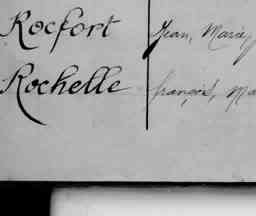 Rocfort Jean, Marie,
Rochelle françois, Ma